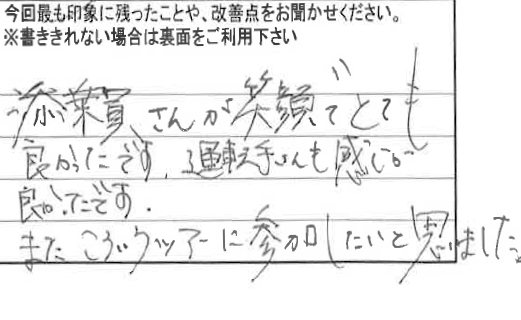 今回最も印象に残ったことや、改善点をお聞かせください。
※書ききれない場合は裏面をご利用下さい
添乗員さんが笑顔でとても
良かったです。運転手さんも感じが
良かったです。
またこういうツアーに参加したいと思いました。